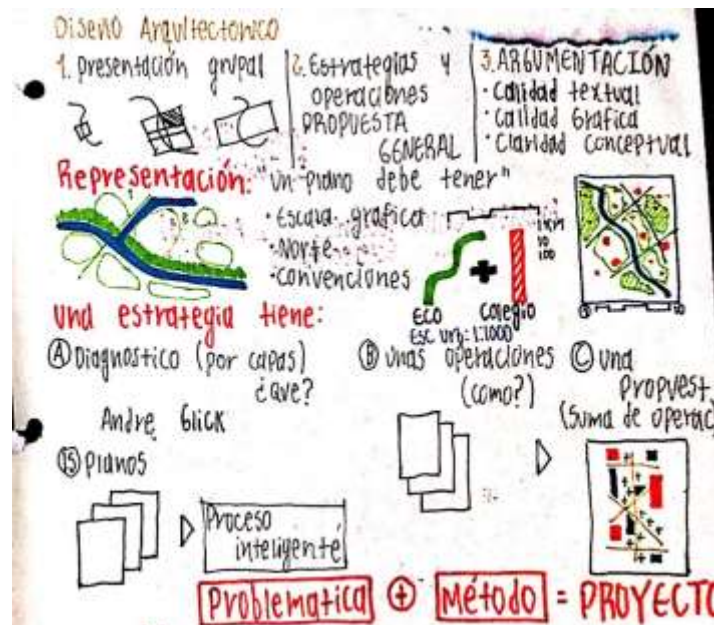 Diseño Arquitectonico
1. presentación grupal
2. Estrategias y
operaciones
PROPUESTA
GENERAL
3. ARGUMENTACIÓN
• Calidad textual
• Calidad Grafica
• Claridad conceptual
Representación: "un plano debe tener"
• Escala grafica
• Norte
• Convenciones
1 KM
10
100
ECO
Colegio
ESC Urb: 1:1000
Una estrategia tiene:
A Diagnostico (por capas)
¿que?
B unas operaciones
(como?)
C una
Propuest
(suma de operac
Andre Glick
15 planos
Proceso
inteligente
Problematica + Método = PROYECTO